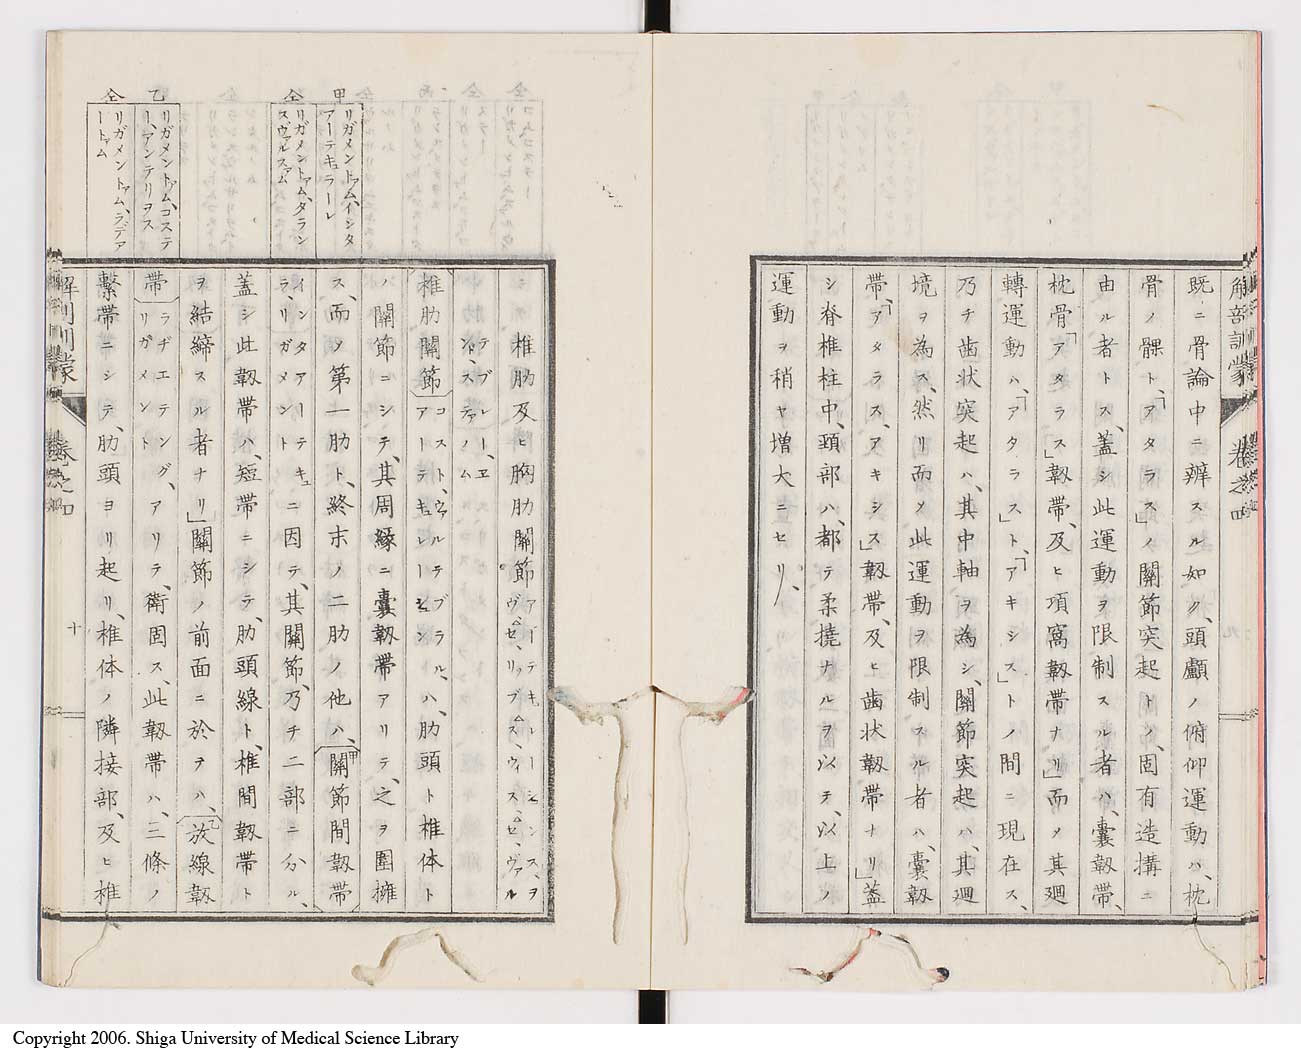 解剖訓蒙 卷之四
既ニ骨論中ニ辨スル如ク、頭顱ノ俯仰運動ハ、枕
骨ノ髁ト、「アタラス」ノ關節突起トノ、固有造搆ニ
由ル者トス、蓋シ此運動ヲ限制スル者ハ、囊韌帶、
枕骨「アタラス」韌帶、及ヒ項窩韌帶ナリ」而メ其廻
轉運動ハ、「アタラス」ト、「アキシス」トノ間ニ現在ス、
乃チ歯状突起ハ、其中軸ヲ為シ、關節突起ハ、其廻
境ヲ為ス、然リ而メ此運動ヲ限制スル者ハ、囊韌
帶、「アタラス、アキシス」韌帶、及ヒ歯状韌帶ナリ」蓋
シ脊椎柱中、頸部ハ、都テ柔撓ナルヲ以テ、以上ノ
運動ヲ稍ヤ増大ニセリ、
椎肋及ヒ胸肋關節アーテキュレーシンス、ヲ
ヴ、ゼ、リッブス、ウィス、ゼ、ヴァル
テブレー、エ
ンド、ステァノム
椎肋關節コスト、ヴァルテブラル、
アーテキュレーション
ハ、肋頭ト椎体ト
ノ關節ニシテ、其周緣ニ囊韌帶アリテ、之ヲ圍擁
ス、而メ第一肋ト、終末ノ二肋ノ他ハ、關節間韌帶
インタアーテキュ
ラリ、リガメント
ニ因テ、其關節、乃チ二部ニ分ル、
蓋シ此韌帶ハ、短帶ニシテ、肋頭線ト、椎間韌帶ト
ヲ結締スル者ナリ」關節ノ前面ニ於ヲハ、放線韌
帶ラヂエテング、
リガメント
アリテ、衛固ス、此韌帶ハ、三條ノ
繋帶ニシテ、肋頭ヨリ起リ、椎体ノ隣接部、及ヒ椎
甲
リガメントァム、インタ
アーテキュラーレ
仝
リガメントァム、タラン
スヴァルスァム
乙
リガメントァム、コステ
ー、アンテリヲス
仝
リガメントァム、ラデア
ートァム
解剖訓蒙 卷之四 十
Copyright 2006. Shiga University of Medical Science Library